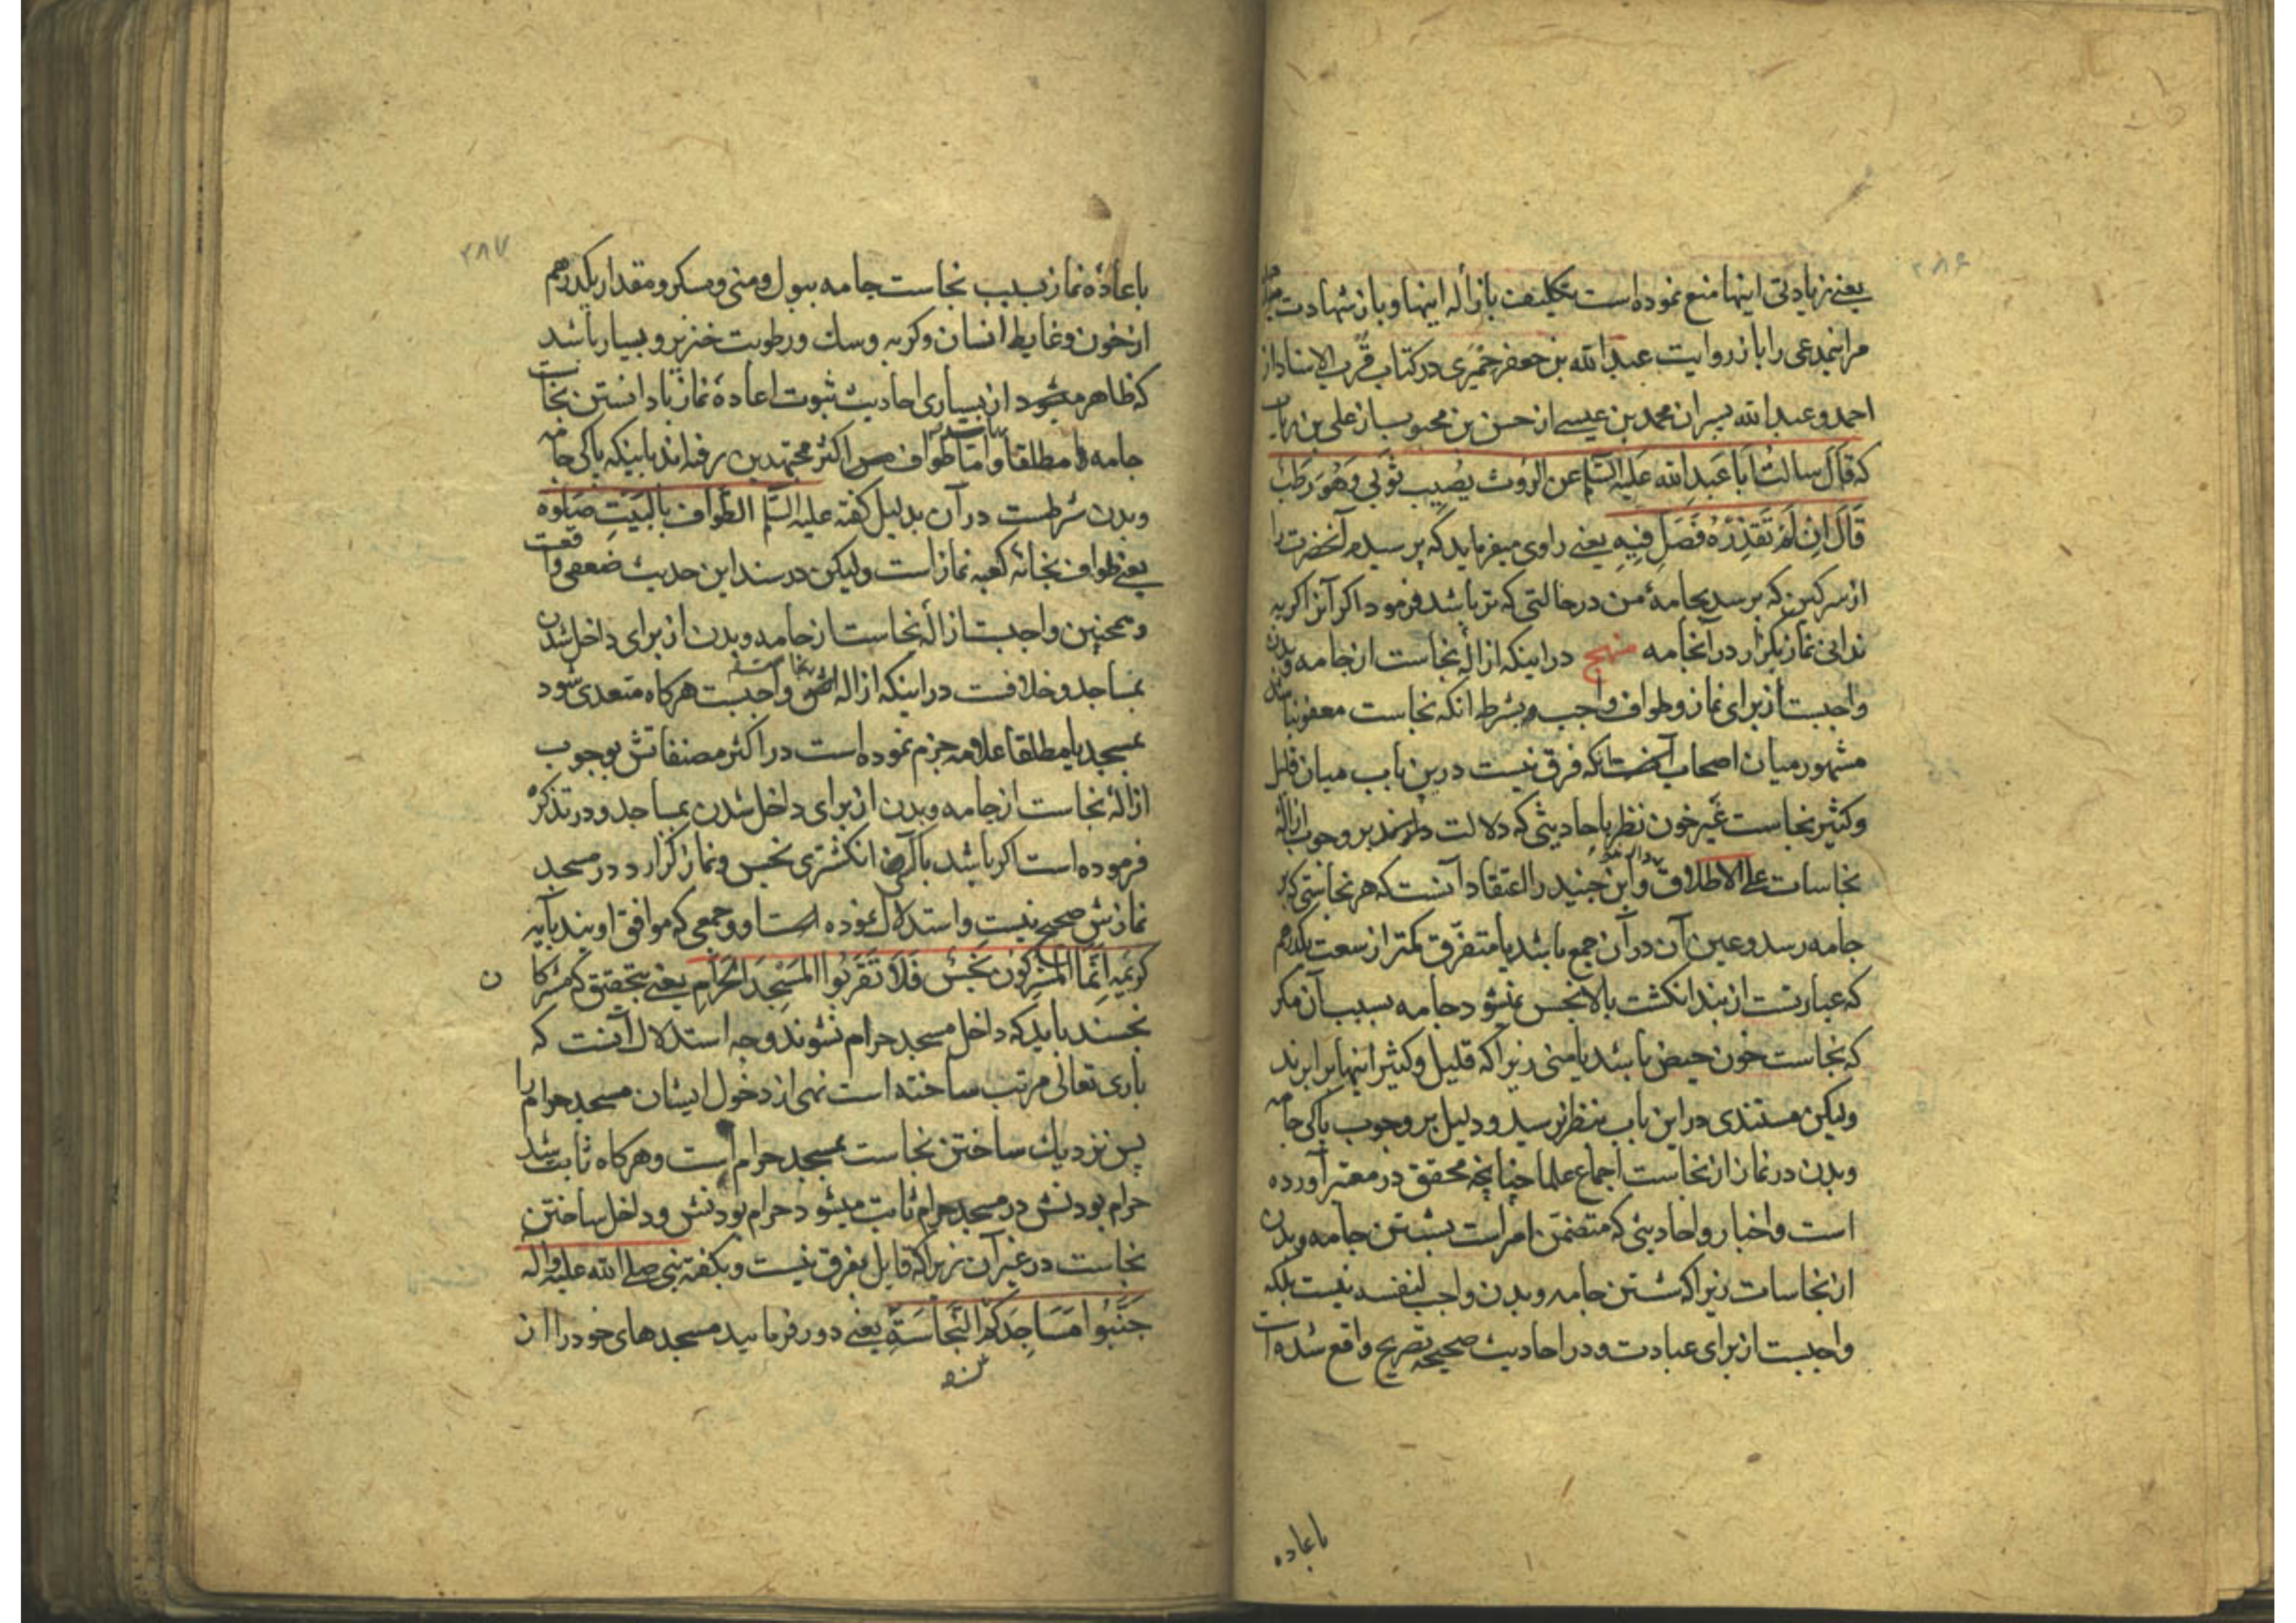 ۲۸۶
یعنی زیادتی اینها منع نموده است تکلیف بازالهٔ اینها و باز شهادت
مراینمدعی را باز روایت عبد الله بن جعفر حمیری در کتاب قرب الاسناد از
احمد و عبد الله پسران محمد بن عیسی از حسن بن محبوب از علی بن رئاب
که قال سالت ابا عبد الله علیه السلام عن الروث یصیب ثوبی و هو رطب
قال ان لم تقذره فصل فیه یعنی راوی میفرماید که پرسیدم آنحضرت را
از سرکین که برسد بجامهٔ من در حالتی که تر باشد فرمود اکر آنرا کریه
ندانی نماز بکزار در آنجامه منهج در اینکه ازالهٔ نجاست از جامه و بدن
واجبست از برای نماز و طواف واجب بشرط انکه نجاست معفو نباشد
مشهور میان اصحاب آنستکه فرق نیست درین باب میان قلیل
و کثیر نجاست غیر خون نظر باحادیثی که دلالت دارند بر وجوب ازالهٔ
نجاسات علی الاطلاق و ابن جنید را اعتقاد آنست که هر نجاستی که بر
جامه رسد و عین آن در آن جمع باشد یا متفرق کمتر از سعت یکدرهم
که عبارتست از بند انکشت بالا نجس نمیشود جامه بسبب آن مکر
که نجاست خون حیض باشد یا منی زیرا که قلیل و کثیر اینها برابرند
ولیکن مستندی در این باب بنظر نرسید و دلیل بر وجوب پاکی جامه
و بدن در نماز از نجاست اجماع علما چنانچه محقق در معتبر آورده
است و اخبار و احادیثی که متضمن امر است بشستن جامه و بدن
از نجاسات زیرا که شستن جامه و بدن واجب لنفسه نیست بلکه
واجبست از برای عبادت و در احادیث صحیحه تصریح واقع شده است
باعاده
۲۸۷
باعادهٔ نماز بسبب نجاست جامه ببول و منی و مسکر و مقدار یکدرهم
از خون و غایط انسان و کربه و سک و رطوبت خنزیر و بسیار باشد
که ظاهر میشود از بسیاری احادیث ثبوت اعادهٔ نماز با دانستن نجاست
جامه مطلقا و اما طواف پس اکثر مجتهدین رفته اند باینکه پاکی جامه
و بدن شرطست در آن بدلیل کفته علیه السلم الطواف بالبیت صلوة
یعنی طواف بخانهٔ کعبه نماز است ولیکن در سند این حدیث ضعفی واقعست
و همچنین واجبست ازالهٔ نجاست از جامه و بدن از برای داخل شدن
بمساجد و خلافست در اینکه ازاله نجاست واجبست هرکاه متعدی شود
بمسجد یا مطلقا علامه جزم نموده است در اکثر مصنفاتش بوجوب
ازالهٔ نجاست از جامه و بدن از برای داخل شدن بمساجد و در تذکره
فرموده است اکر باشد با کسی انکشتری نجس و نماز کزارد در مسجد
نمازش صحیح نیست و استدلال نموده است او و جمعی که موافق اویند بآیه
کریمه انما المشرکون نجس فلا تقربوا المسجد الحرام یعنی بتحقیق که مشرکان
نجسند باید که داخل مسجد حرام نشوند وجه استدلال آنست که
باری تعالی مرتب ساخته است نهی از دخول ایشان مسجد حرام را
پس نزدیک ساختن نجاست بمسجد حرام است و هرکاه ثابت شد
حرام بودنش در مسجد حرام ثابت میشود حرام بودنش و داخل ساختن
نجاست در غیر آن زیرا که قایل بفرق نیست و بکفتهٔ نبی صلی الله علیه و آله
جنبوا مساجدکم النجاسة یعنی دور فرمایید مسجدهای خود را از